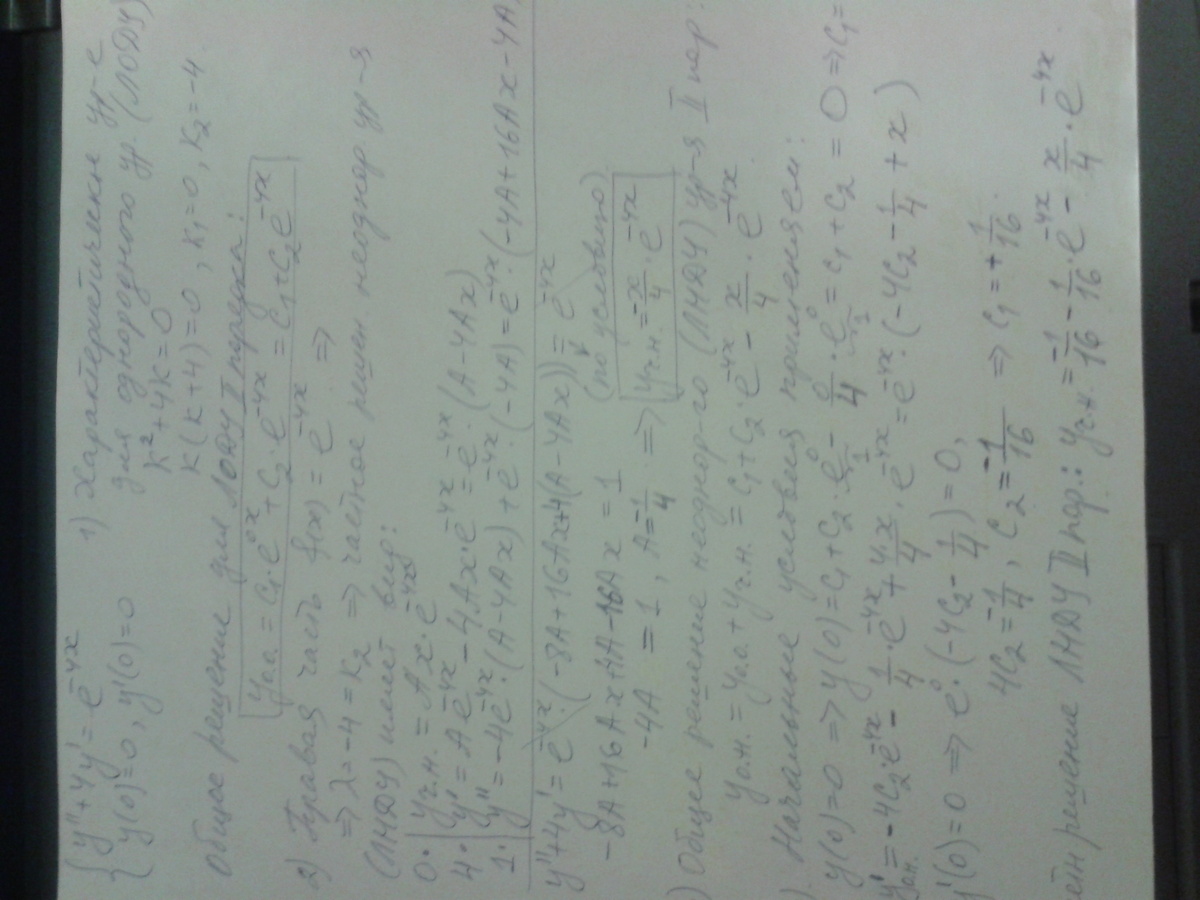 { y'' + 4y' = e^{-4x}
{ y(0)=0, y'(0)=0
1) Характеристическ ур-е
для однородного ур. (ЛОДУ)
k² + 4k = 0
k(k+4)=0, k₁=0, k₂=-4.
Общее решение для ЛОДУ II порядка:
y₀.₀. = C₁e^{0x} + C₂·e^{-4x} = C₁ + C₂e^{-4x}
2) Правая часть f(x) = e^{-4x} ⇒
⇒ λ = -4 = k₂ ⇒ частное решен неоднор ур-я
(ЛНДУ) имеет вид:
0· | yч.н. = Ax·e^{-4x}
4· | y' = Ae^{-4x} - 4·Ax·e^{-4x} = e^{-4x}·(A-4Ax)
1· | y'' = -4e^{-4x}·(A-4Ax) + e^{-4x}·(-4A) = e^{-4x}·(-4A+16Ax-4A)
y''+4y' = e^{-4x}·(-8A+16Ax+4(A-4Ax)) = e^{-4x}
(по условию)
-8A+16Ax+4A-16Ax = 1
-4A = 1, A = -1/4 ⇒ yч.н. = -x/4·e^{-4x}
) Общее решение неоднор-го (ЛНДУ) ур-я II пор:
yо.н. = y₀.₀ + yч.н. = C₁ + C₂·e^{-4x} - x/4·e^{-4x}.
). Начальные условия применяем:
y(0)=0 ⇒ y(0)=C₁+C₂·e⁰ - 0/4·e⁰ = C₁+C₂ = 0 ⇒ C₁=
y'о.н. = -4C₂·e^{-4x} - 1/4·e^{-4x} + 4x/4·e^{-4x} = e^{-4x}·(-4C₂ - 1/4 + x)
y'(0)=0 ⇒ e⁰·(-4C₂ - 1/4) = 0,
4C₂ = -1/4, C₂ = -1/16 ⇒ C₁ = +1/16.
решение ЛНДУ II пор.: yч.н. = 1/16 - 1/16·e^{-4x} - x/4·e^{-4x}